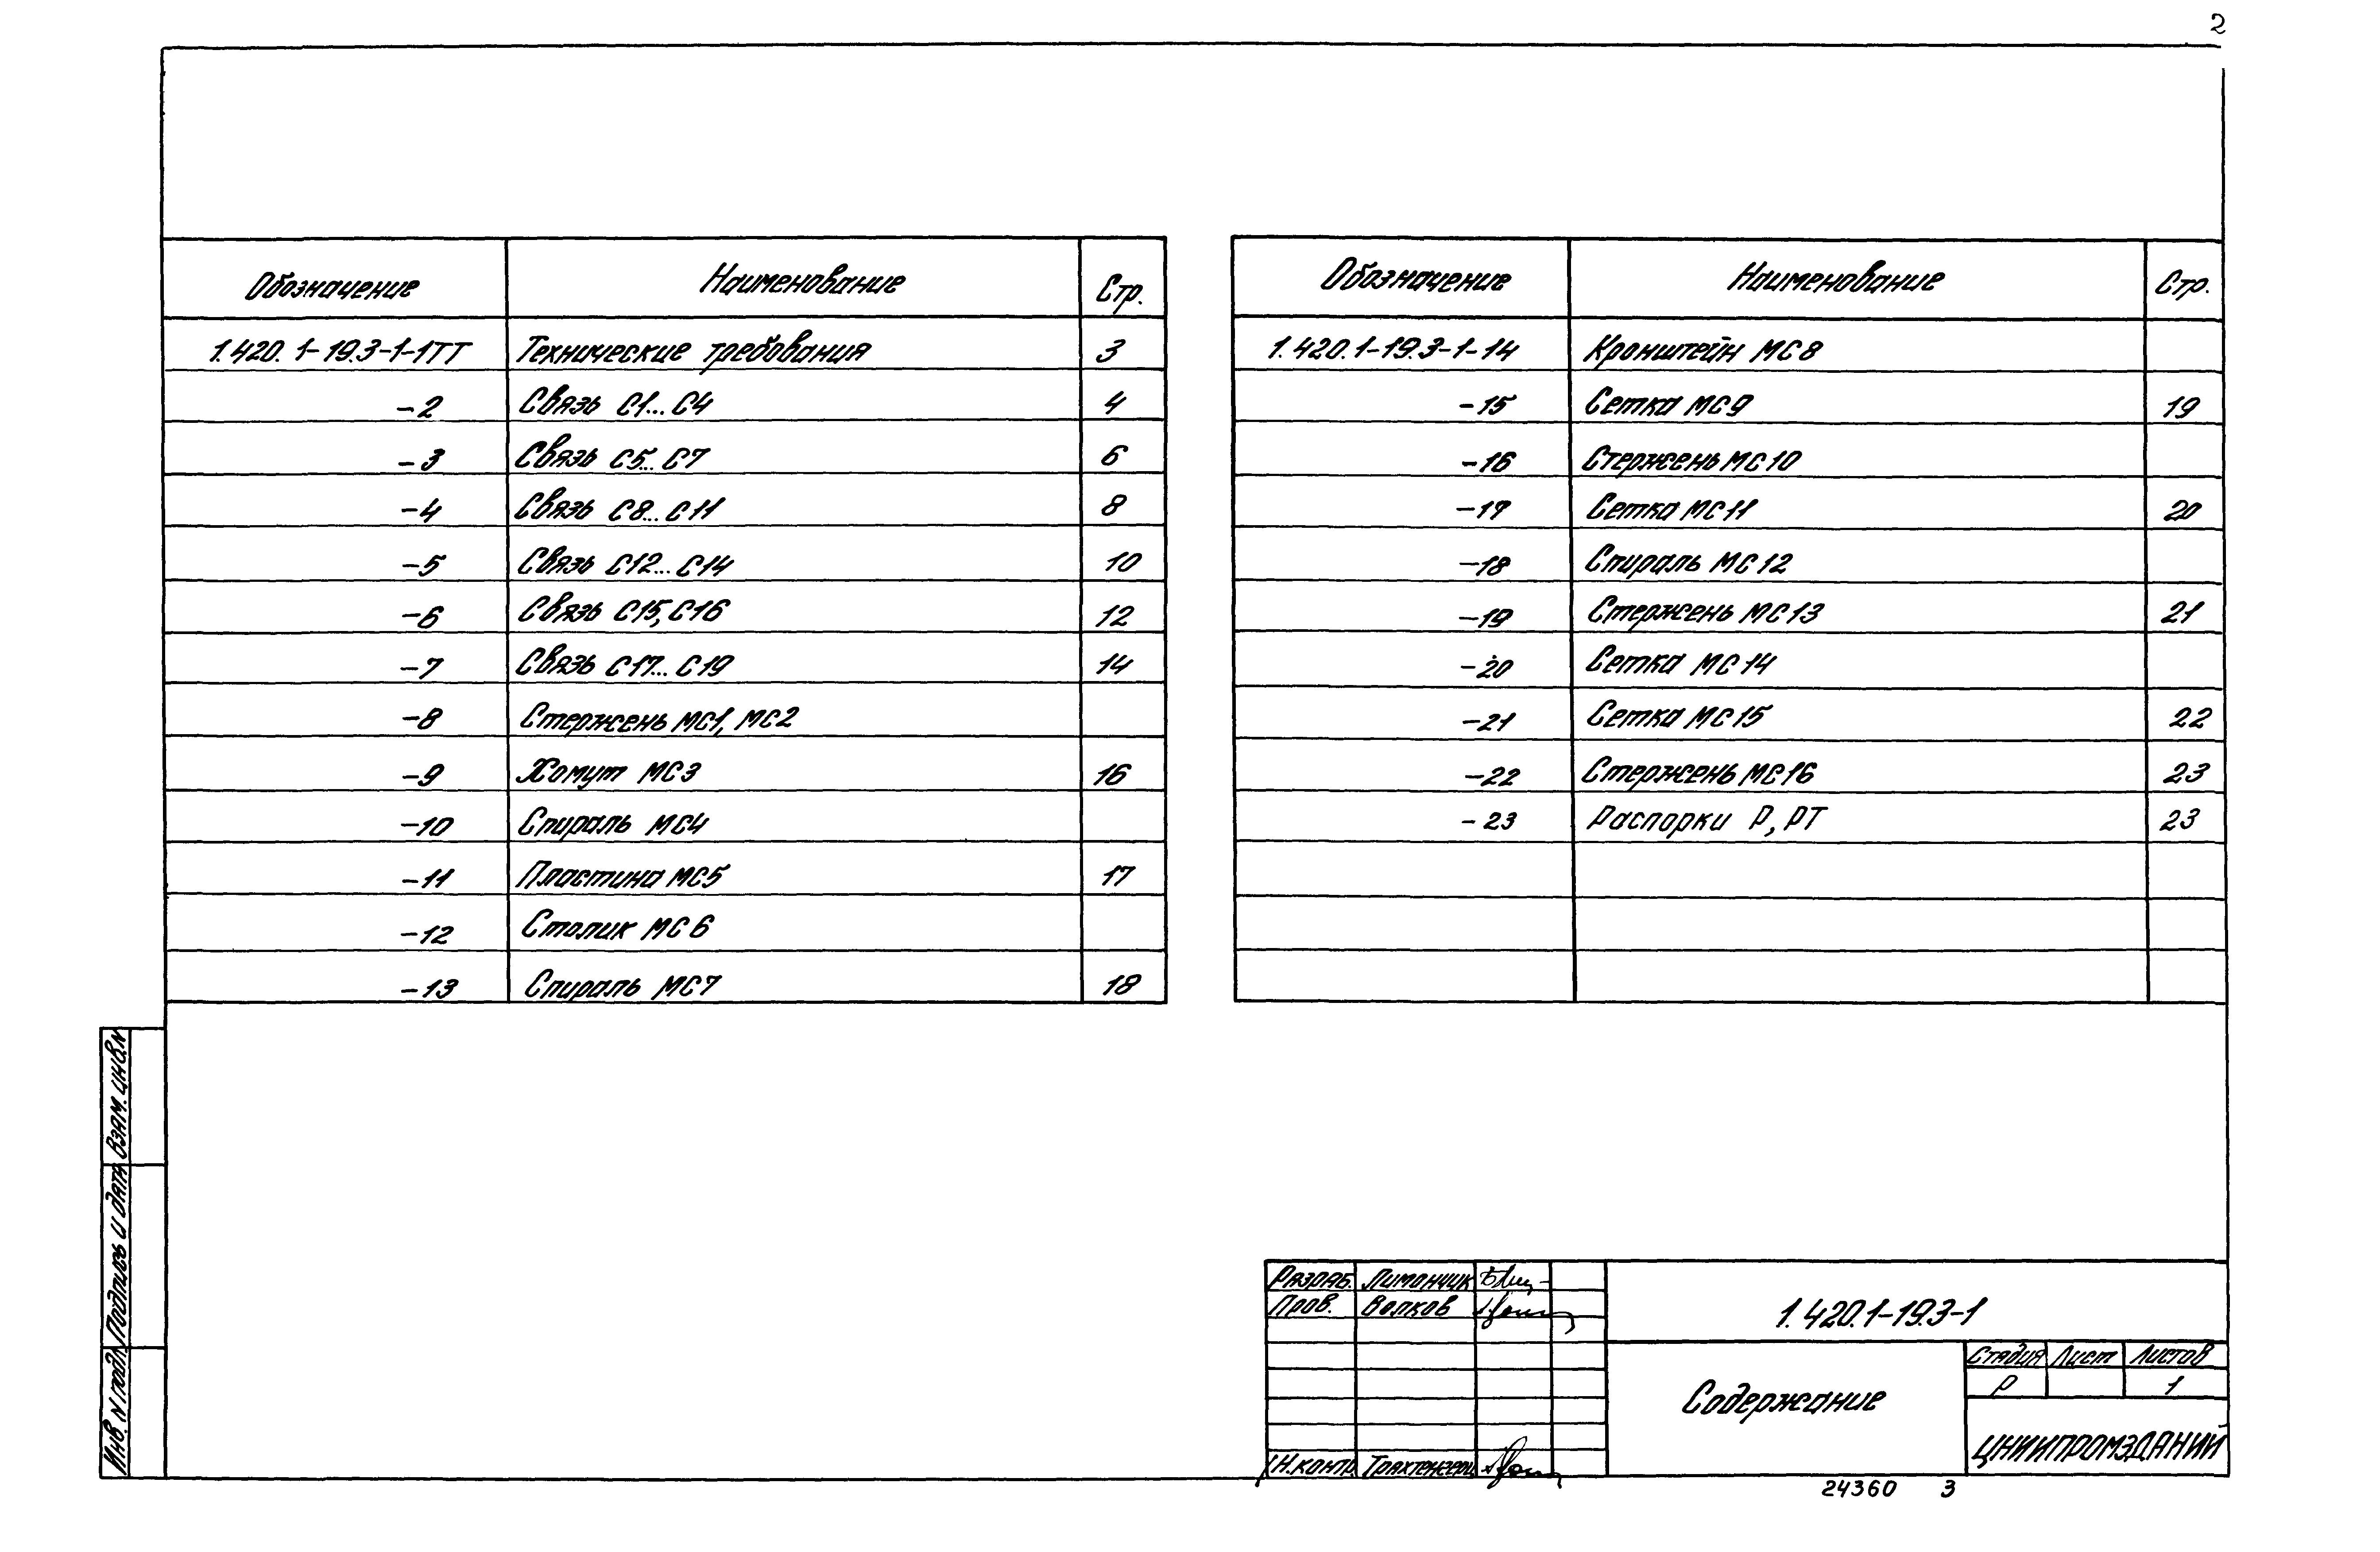 2
Обозначение Наименование Стр.
1.420.1-19.3-1-1ТТ Технические требования 3
-2 Связь С1...С4 4
-3 Связь С5...С7 6
-4 Связь С8...С11 8
-5 Связь С12...С14 10
-6 Связь С15, С16 12
-7 Связь С17...С19 14
-8 Стержень МС1, МС2
-9 Хомут МС3 16
-10 Спираль МС4
-11 Пластина МС5 17
-12 Столик МС6
-13 Спираль МС7 18
Обозначение Наименование Стр.
1.420.1-19.3-1-14 Кронштейн МС8
-15 Сетка МС9 19
-16 Стержень МС10
-17 Сетка МС11 20
-18 Спираль МС12
-19 Стержень МС13 21
-20 Сетка МС14
-21 Сетка МС15 22
-22 Стержень МС16 23
-23 Распорки Р, РТ 23
Взам. инв. N
Подпись и дата
Инв. N подл.
Разраб. Лимончик
Пров. Волков
Н.контр.
1.420.1-19.3-1
Содержание
Стадия Лист Листов
Р 1
ЦНИИПРОМЗДАНИЙ
24360 3